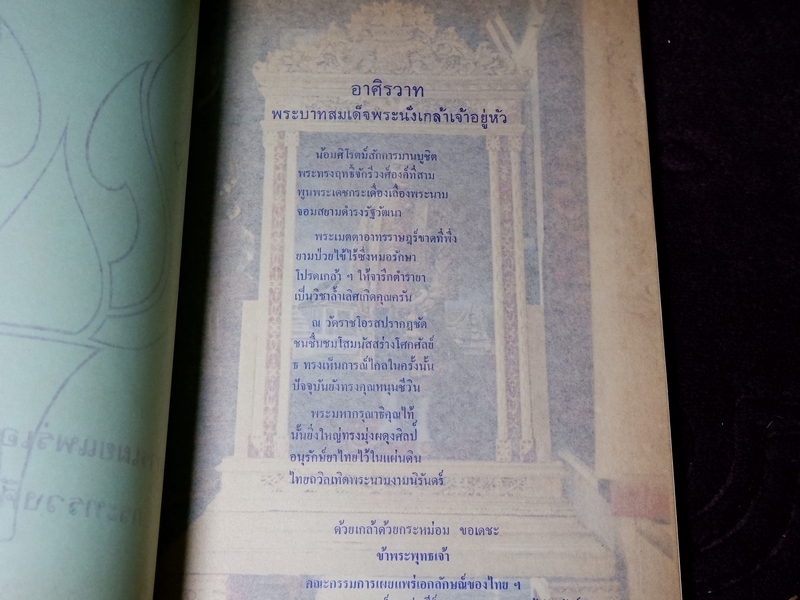 อาศิรวาท
พระบาทสมเด็จพระนั่งเกล้าเจ้าอยู่หัว
น้อมศิโรตม์สักการมานบูชิต
พระทรงฤทธิ์จักรีวงศ์องค์ที่สาม
พูนพระเดชกระเดื่องเลื่องพระนาม
จอมสยามดำรงรัฐวัฒนา
พระเมตตาอาทรราษฎร์ขาดที่พึ่ง
ยามป่วยไข้ไร้ซึ่งหมอรักษา
โปรดเกล้า ฯ ให้จารึกตำรายา
เป็นวิชาล้ำเลิศเกิดคุณครัน
ณ วัดราชโอรสปรากฏชัด
ชนชื่นชมโสมนัสสร่างโศกศัลย์
ธ ทรงเห็นการณ์ไกลในครั้งนั้น
ปัจจุบันยังทรงคุณหนุนชีวิน
พระมหากรุณาธิคุณไท้
นั้นยิ่งใหญ่ทรงมุ่งผดุงศิลป์
อนุรักษ์ยาไทยไว้ในแผ่นดิน
ไทยถวิลเทิดพระนามงามนิรันดร์
ด้วยเกล้าด้วยกระหม่อม ขอเดชะ
ข้าพระพุทธเจ้า
คณะกรรมการเผยแพร่เอกลักษณ์ของไทย ฯ